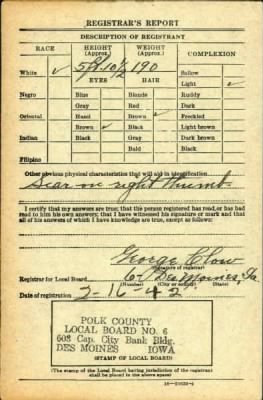 REGISTRAR'S REPORT
DESCRIPTION OF REGISTRANT
RACE HEIGHT (Approx.) WEIGHT (Approx.) COMPLEXION
White ✓ 5ft 10½ 190 Sallow
EYES HAIR Light ✓
Negro Blue Blonde Ruddy
Gray Red Dark
Oriental Hazel Brown ✓ Freckled
Brown ✓ Black Light brown
Indian Black Gray Dark brown
Bald Black
Filipino
Other obvious physical characteristics that will aid in identification
Scar on right thumb.
I certify that my answers are true; that the person registered has read or has had
read to him his own answers; that I have witnessed his signature or mark and that
all of his answers of which I have knowledge are true, except as follows:
George Clow
(Signature of registrar)
Registrar for Local Board 6 Des Moines, Ia.
(Number) (City or county) (State)
Date of registration 2-16-42
POLK COUNTY
LOCAL BOARD NO. 6
603 Cap. City Bank Bldg.
DES MOINES IOWA
(STAMP OF LOCAL BOARD)
(The stamp of the Local Board having jurisdiction of the registrant
shall be placed in the above space.)